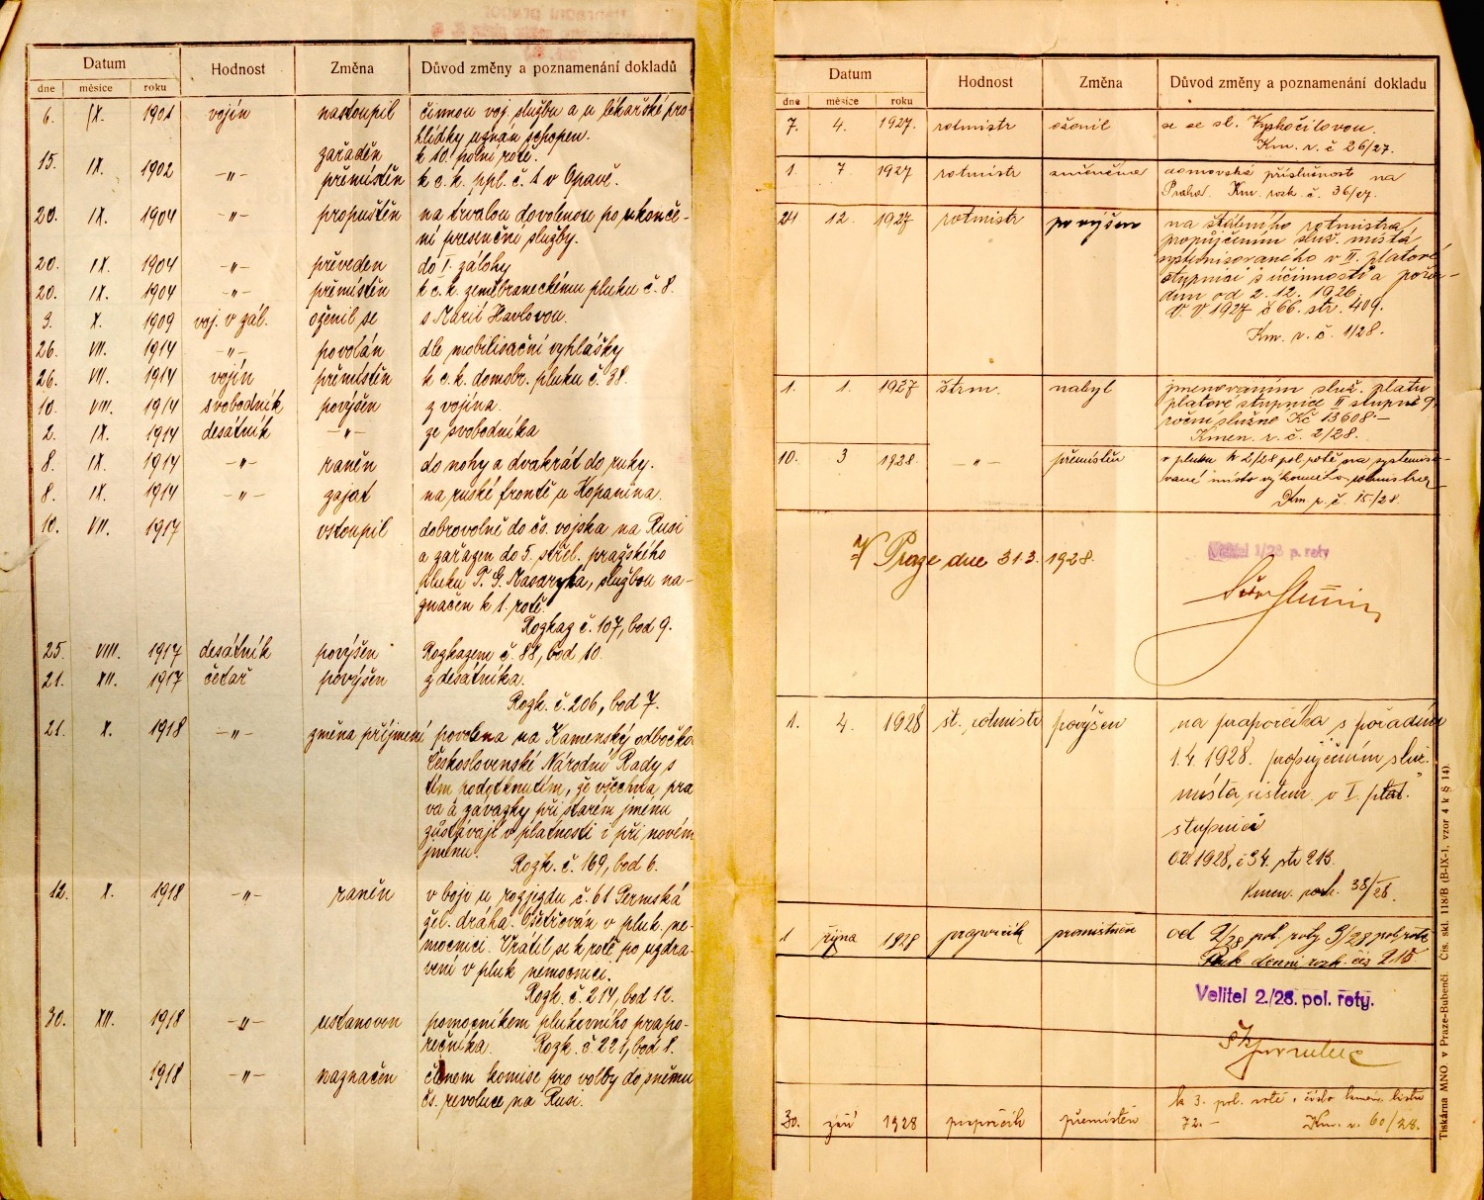 Datum Hodnost Změna Důvod změny a poznamenání dokladů
dne měsíce roku
6. IX. 1901 vojín nastoupil činnou voj. službu a u lékařské pro-
hlídky uznán schopen.
zařaděn k 10. polní rotě.
15. IX. 1902 -„- přemístěn k c. k. ppl. č. 1 v Opavě.
20. IX. 1904 -„- propuštěn na trvalou dovolenou po ukonče-
ní presenční služby.
20. IX. 1904 -„- převeden do I. zálohy
20. IX. 1904 -„- přemístěn k c. k. zeměbraneckému pluku č. 8.
3. X. 1909 voj. v zál. oženil se s Marií Havlovou.
26. VII. 1914 -„- povolán dle mobilisační vyhlášky
26. VII. 1914 vojín přemístěn k c. k. domobr. pluku č. 38.
10. VIII. 1914 svobodník povýšen z vojína.
2. IX. 1914 desátník -„- ze svobodníka
8. IX. 1914 -„- raněn do nohy a dvakrát do ruky.
8. IX. 1914 -„- zajat na ruské frontě u Kopanina.
10. VII. 1917 vstoupil dobrovolně do čs. vojska na Rusi
a zařazen do 5. střel. pražského
pluku T. G. Masaryka, službou na-
značen k 1. rotě.
Rozkaz č. 107, bod 9.
25. VIII. 1917 desátník povýšen Rozkazem č. 88, bod 10.
21. XII. 1917 četař povýšen z desátníka.
Rozk. č. 206, bod 7.
21. X. 1918 -„- změna příjmení povolena na Kamenský odbočkou
Československé Národní Rady s
tím podotknutím, že všechna prá
va a závazky při starém jménu
zůstávají v platnosti i při novém
jménu.
Rozk. č. 169, bod 6.
12. X. 1918 -„- raněn v boji u rozjezdu č. 61 Permská
žel. dráha. Ošetřován v pluk. ne-
mocnici. Vrátil se k rotě po uzdra-
vení v pluk nemocnici.
Rozk. č. 214, bod 12.
30. XII. 1918 -„- ustanoven pomocníkem plukovního prapo-
rečníka. Rozk. č. 221, bod 1.
1918 -„- naznačen členem komise pro volby do sněmu
čs. revoluce na Rusi.
Datum Hodnost Změna Důvod změny a poznamenání dokladu
dne měsíce roku
7. 4. 1927. rotmistr oženil se se sl. Vyskočilovou.
Km. r. č 26/27.
1. 7 1927 rotmistr domovská příslušnost na
Praha. Km. rozk. č. 36/27.
24 12. 1927 rotmistr povýšen na štábního rotmistra,
propůjčením služ. místa
systemisovaného v II. platové
stupnici s účinností a pořa-
dím od 2. 12. 1926.
V. V 1927 č 66. str. 409.
Km. r. č. 1/28.
1. 1. 1927 štrm. nabyl jmenováním služ. platu
platové stupnice II stupně 9.
roční služné Kč 13608.-
Kmen. r. č. 2/28.
10. 3 1928. -„- přemístěn
Km r. č. 15/28
V Praze dne 31.3. 1928.
Velitel 1/28 p. roty
1. 4. 1928 št. rotmistr povýšen na praporčíka s pořadím
1.4. 1928. propůjčením služ.
místa sistem. v I. plat.
stupnici
1928, č 34. str 213.
Kmen. rozk. 38/28.
1 října 1928 praporčík přemístěn od 2/28 pol. roty 3/28 pol. rotě
Pluk denní rozk. čís 215
Velitel 2./28. pol. roty.
30. září 1928 praporčík přemístěn k 3. pol. rotě, číslo kmen. listu
72.- Km. r. 60/28.
Tiskárna MNO v Praze-Bubenči Čís. skl. 118/B (B-IX-1, vzor 4 k § 14).